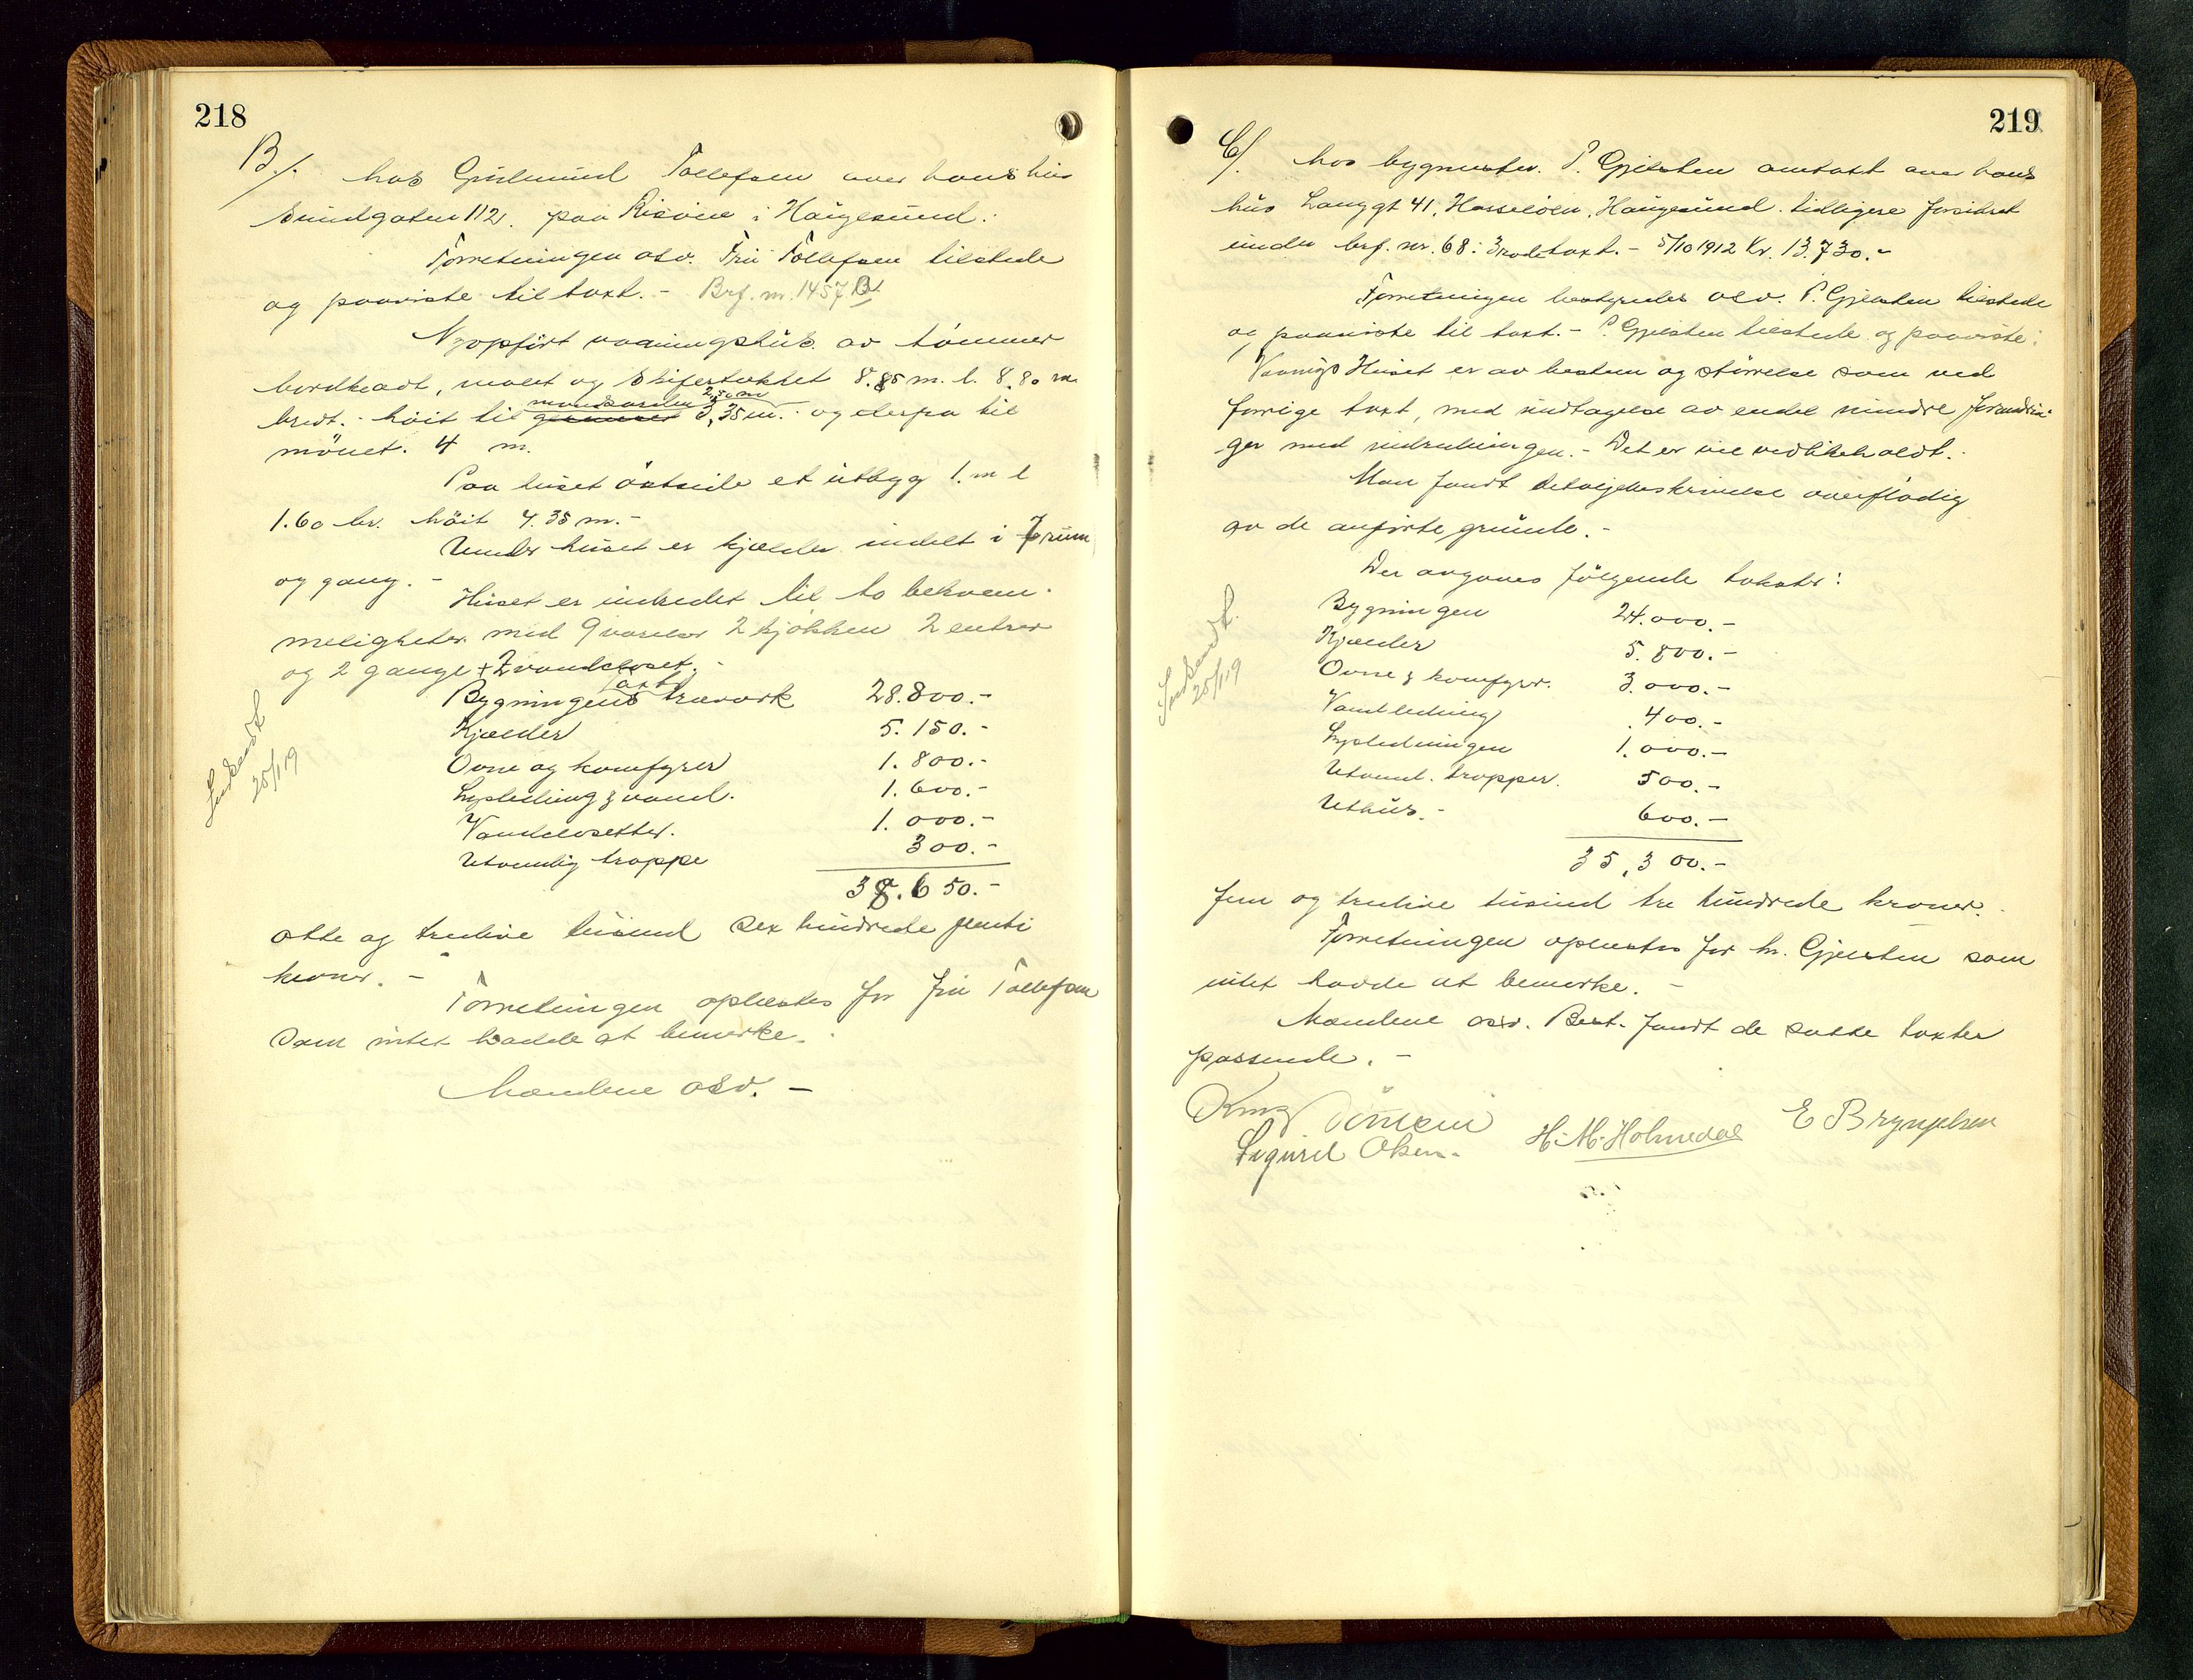 218
B./. hos Gudmund Tollefsen over hans hus
Sundgaten 112. paa Risöen i Haugesund.
Forretningen osv. Fru Tollefsen tilstede
og paaviste til taxt. - Brf. nr. 1457 B.
Nyopfört vaaningshus av tömmer
bordklædt, malet og skifertækket 8.85 m. l. 8.80 m.
bredt. - höit til mandsarden 2,50 m 3,35 m. og derfra til
mönet. 4 m.
Paa huset östside et utbygg 1. m l
1.60 br. höit 4.35 m. -
Under huset er kjælder indelt i 7 rum
og gang. -
Huset er indredet til to bekvem-
meligheter med 9 værelser 2 kjøkken 2 entreer
og 2 gange + 2 vandcloset. -
Taxt
Bygningens træværk 28.800.-
Kjælder 5.150.-
Ovne og komfyrer 1.800.-
Lysledning & vand. 1.600.-
Vandclosetter. 1.000.-
Utvendig trappe 300.-
38.650.-
Indsendt
25/1 19
otte og tredive tusind sex hundrede femti
kroner. -
Forretningen oplæstes for fru Tollefsen
som intet hadde at bemerke.
Mændene osv. -
219
C/. hos bygmester P. Gjersten omtaxt over hans
hus Langgt 41, Hasseløen, Haugesund. tidligere forsikret
under brf. nr. 68: Brodetaxt. - 5/10 1912 Kr. 13.730.-
Forretningen bestyredes osv. P. Gjersten tilstede
og paaviste til taxt. - P. Gjersten tilstede og paaviste:
Vaanings Huset er av bestem og störrelse som ved
forrige taxt, med undtagelse av endel mindre forandrin-
ger med indredningen. - Det er vel vedlikeholdt.
Man fandt detaljebeskrivelse overflödig
av de anförte grunde. -
Der avgaves fölgende takster:
Bygningen 24.000.-
Kjælder 5.800.-
Ovne & komfyrer. 3.000.-
Vandledning 400.-
Lysledningen 1.000.-
Utvend. trapper. 500.-
Uthus. - 600.-
35,300.-
Indsendt
25/1 19
fem og tredive tusind tre hundrede kroner.
Forretningen oplæstes for hr. Gjersten som
intet hadde at bemerke. -
Mændene osv. Best. fandt de satte taxter
passende. -
Sigurd Olsen. H. M. Holmedal E Brynjelsen